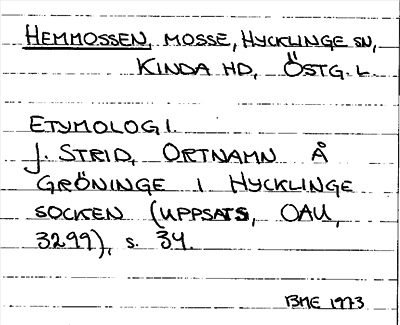 HEMMOSSEN, MOSSE, HYCKLINGE SN,
KINDA HD, ÖSTG. L.
ETYMOLOGI.
J. STRID, ORTNAMN Å
GRÖNINGE I HYCKLINGE
SOCKEN (UPPSATS, OAU,
3299), S. 34.
BME 1973